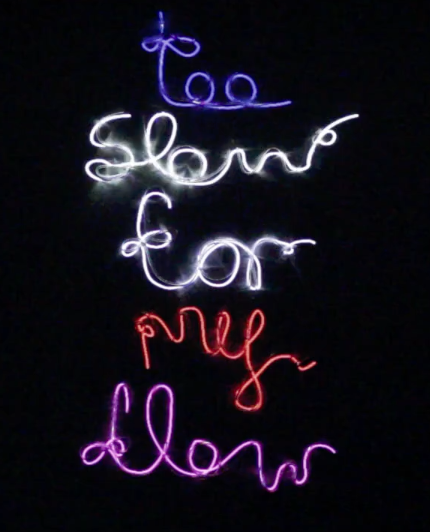 too
slow
for
my
flow